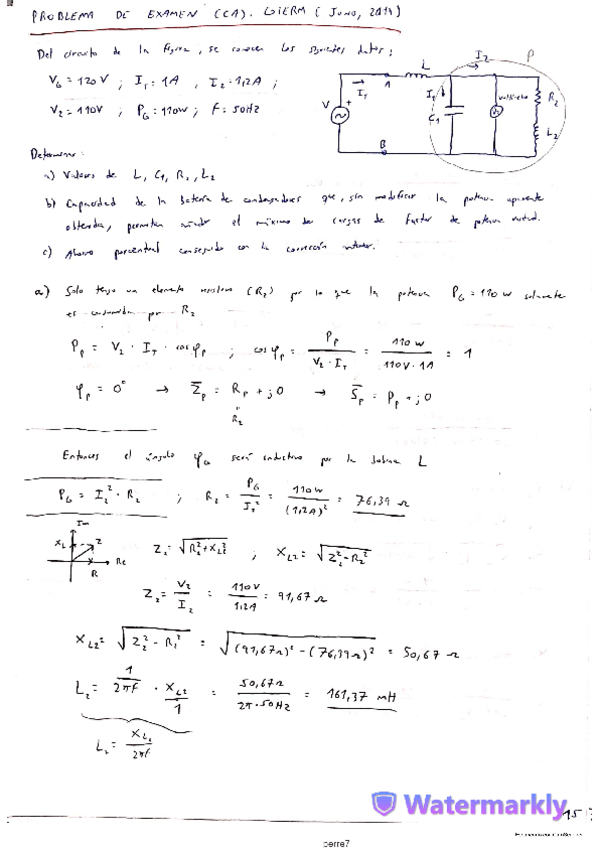 PROBLEMA DE EXAMEN (CA). GIERM (Junio, 2014)
Del circuito de la figura, se conocen los siguientes datos:
V_G = 120V ; I_T = 1A , I_2 = 1,2A ;
V_2 = 110V ; P_G = 110W ; F = 50Hz
L I_2 P
A I_T I_1 C_1 voltímetro V_2 R_2
V + L_2
B
Determinar:
a) Valores de L, C_1, R_2, L_2
b) Capacidad de la batería de condensadores que, sin modificar la potencia aparente
obtenida, permitan añadir el máximo de cargas de factor de potencia unidad.
c) Ahorro porcentual conseguido con la corrección anterior.
a) Solo tengo un elemento resistivo (R_2) por lo que la potencia P_G = 110 W solamente
es consumida por R_2
P_p = V_2 · I_T · cos φ_p ; cos φ_p = P_p / (V_2 · I_T) = 110W / (110V · 1A) = 1
φ_p = 0° → Z̄_p = R_p + j0 → S̄_p = P_p + j0
R_2
Entonces el ángulo φ_G será inductivo por la bobina L
P_G = I_2² · R_2 ; R_2 = P_G / I_2² = 110W / (1,2A)² = 76,39 Ω
Im
X_L Z R Re
Z_2 = √(R_2² + X_L2²) ; X_L2 = √(Z_2² - R_2²)
Z_2 = V_2 / I_2 = 110V / 1,2A = 91,67 Ω
X_L2 = √(Z_2² - R_2²) = √((91,67Ω)² - (76,39Ω)²) = 50,67 Ω
L_2 = 1 / 2πf · X_L2 / 1 = 50,67Ω / 2π·50Hz = 161,37 mH
L_2 = X_L2 / 2πf
Watermarkly
15
perre7